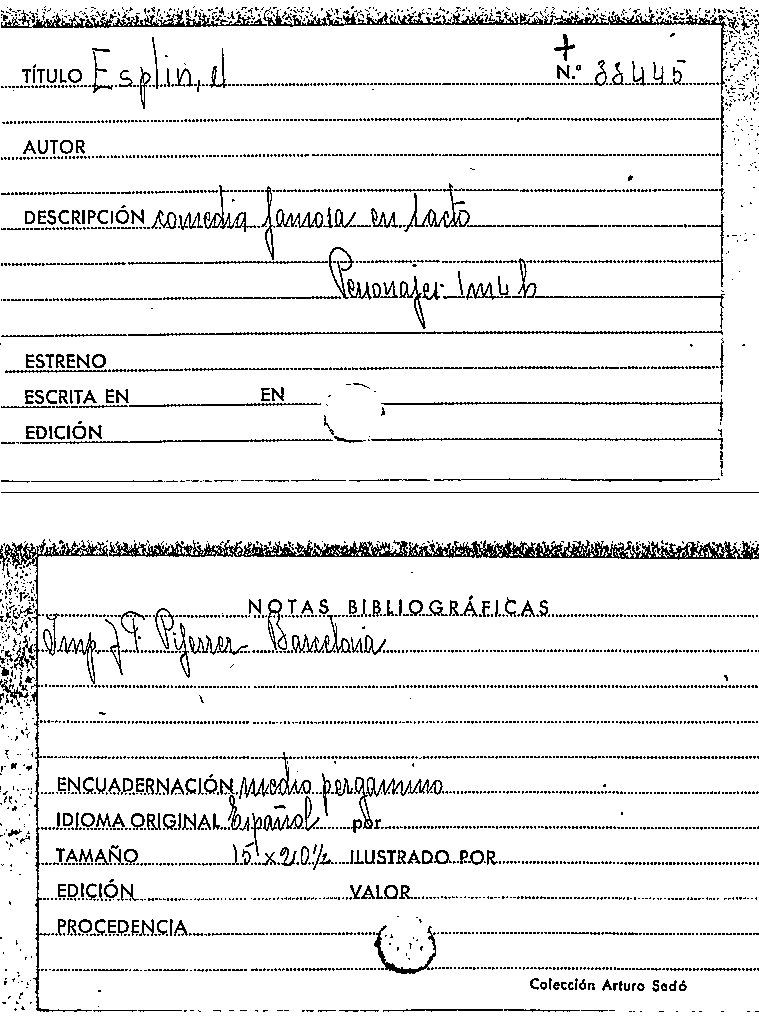 +
TÍTULO Esplin, el N.º 33445
AUTOR
DESCRIPCIÓN comedia famosa en 1 acto
Personajes: 1 m 4 h
ESTRENO
ESCRITA EN EN
EDICIÓN
NOTAS BIBLIOGRÁFICAS
Imp J F. Piferrer - Barcelona
ENCUADERNACIÓN medio pergamino
IDIOMA ORIGINAL Español por
TAMAÑO 15 x 20 ½ ILUSTRADO POR
EDICIÓN VALOR
PROCEDENCIA
Colección Arturo Sedó